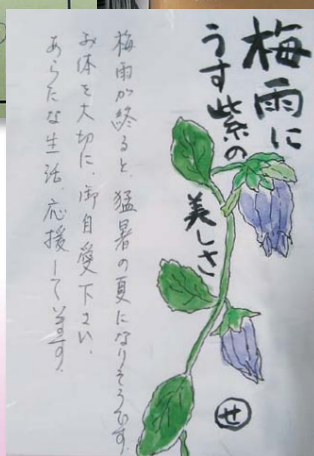 梅雨に
うす紫の
美しさ
㋝
梅雨が終ると、猛暑の夏になりそうです。
お体を大切に、御自愛下さい。
あらたな生活、応援しています。